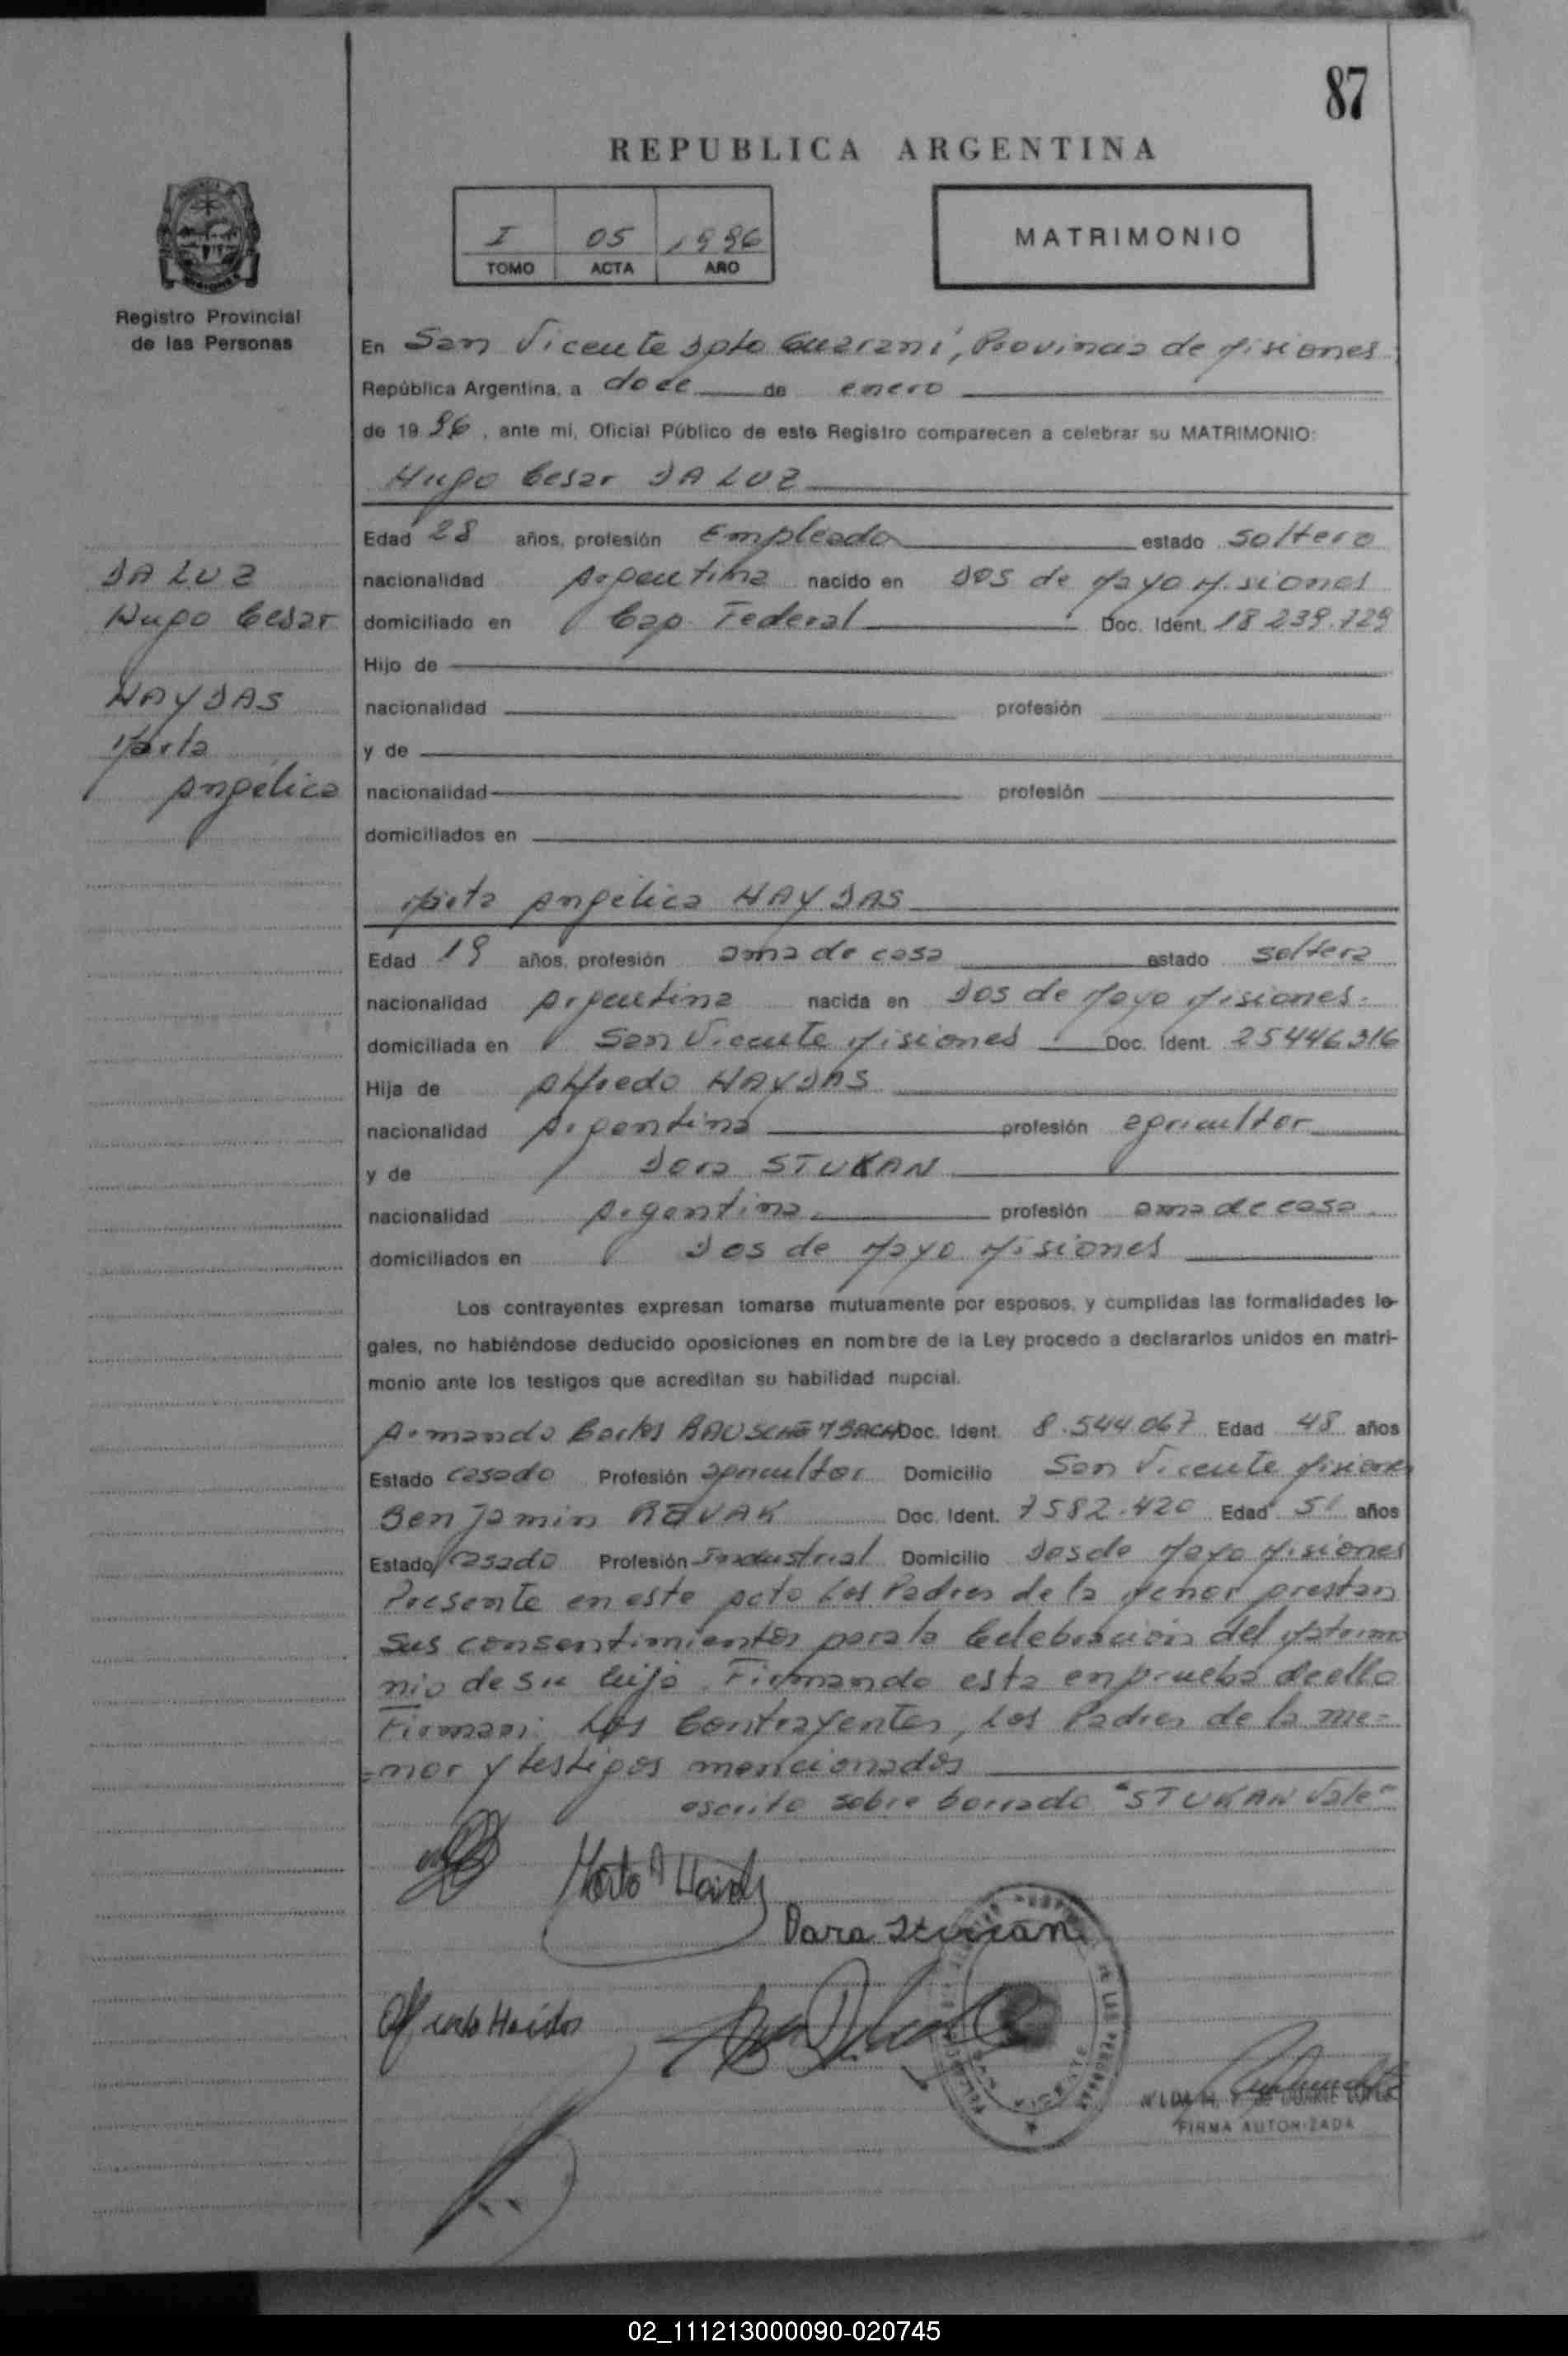 87
REPUBLICA ARGENTINA
I 05 1996
TOMO ACTA AÑO
MATRIMONIO
Registro Provincial
de las Personas
En San Vicente Dpto Guarani, Provincia de Misiones
República Argentina, a doce de enero
de 19 96, ante mi, Oficial Público de este Registro comparecen a celebrar su MATRIMONIO:
Hugo Cesar DA LUZ
Edad 28 años, profesión Empleado estado soltero
DA LUZ
nacionalidad Argentina nacido en Dos de Mayo Misiones
Hugo Cesar
domiciliado en Cap. Federal Doc. Ident. 18 239.729
Hijo de
HAYDAS
nacionalidad profesión
Marta
y de
Angélica
nacionalidad profesión
domiciliados en
Marta Angélica HAYDAS
Edad 19 años, profesión ama de casa estado soltera
nacionalidad Argentina nacida en Dos de Mayo Misiones.
domiciliada en San Vicente Misiones Doc. Ident. 25446316
Hija de Alfredo HAYDAS
nacionalidad Argentina profesión agricultor
y de Dora STUKAN
nacionalidad Argentina profesión ama de casa.
domiciliados en Dos de Mayo Misiones
Los contrayentes expresan tomarse mutuamente por esposos, y cumplidas las formalidades le-
gales, no habiéndose deducido oposiciones en nombre de la Ley procedo a declararlos unidos en matri-
monio ante los testigos que acreditan su habilidad nupcial.
Armando Carlos Doc. Ident. 8.544.067 Edad 48 años
Estado casado Profesión agricultor Domicilio San Vicente Misiones
Benjamin Doc. Ident. 7582.420 Edad 51 años
Estado casado Profesión Industrial Domicilio Dos de Mayo Misiones
Presente en este acto Los Padres de la Menor prestan
sus consentimientos para la Celebración del Matrimo
nio de su hija. Firmando esta en prueba de ello
Firman: Los Contrayentes, Los Padres de la me=
=nor y testigos mencionados
escrito sobre borrado "STUKAN Vale"
Dora Stucan
FIRMA AUTORIZADA
02_111213000090-020745